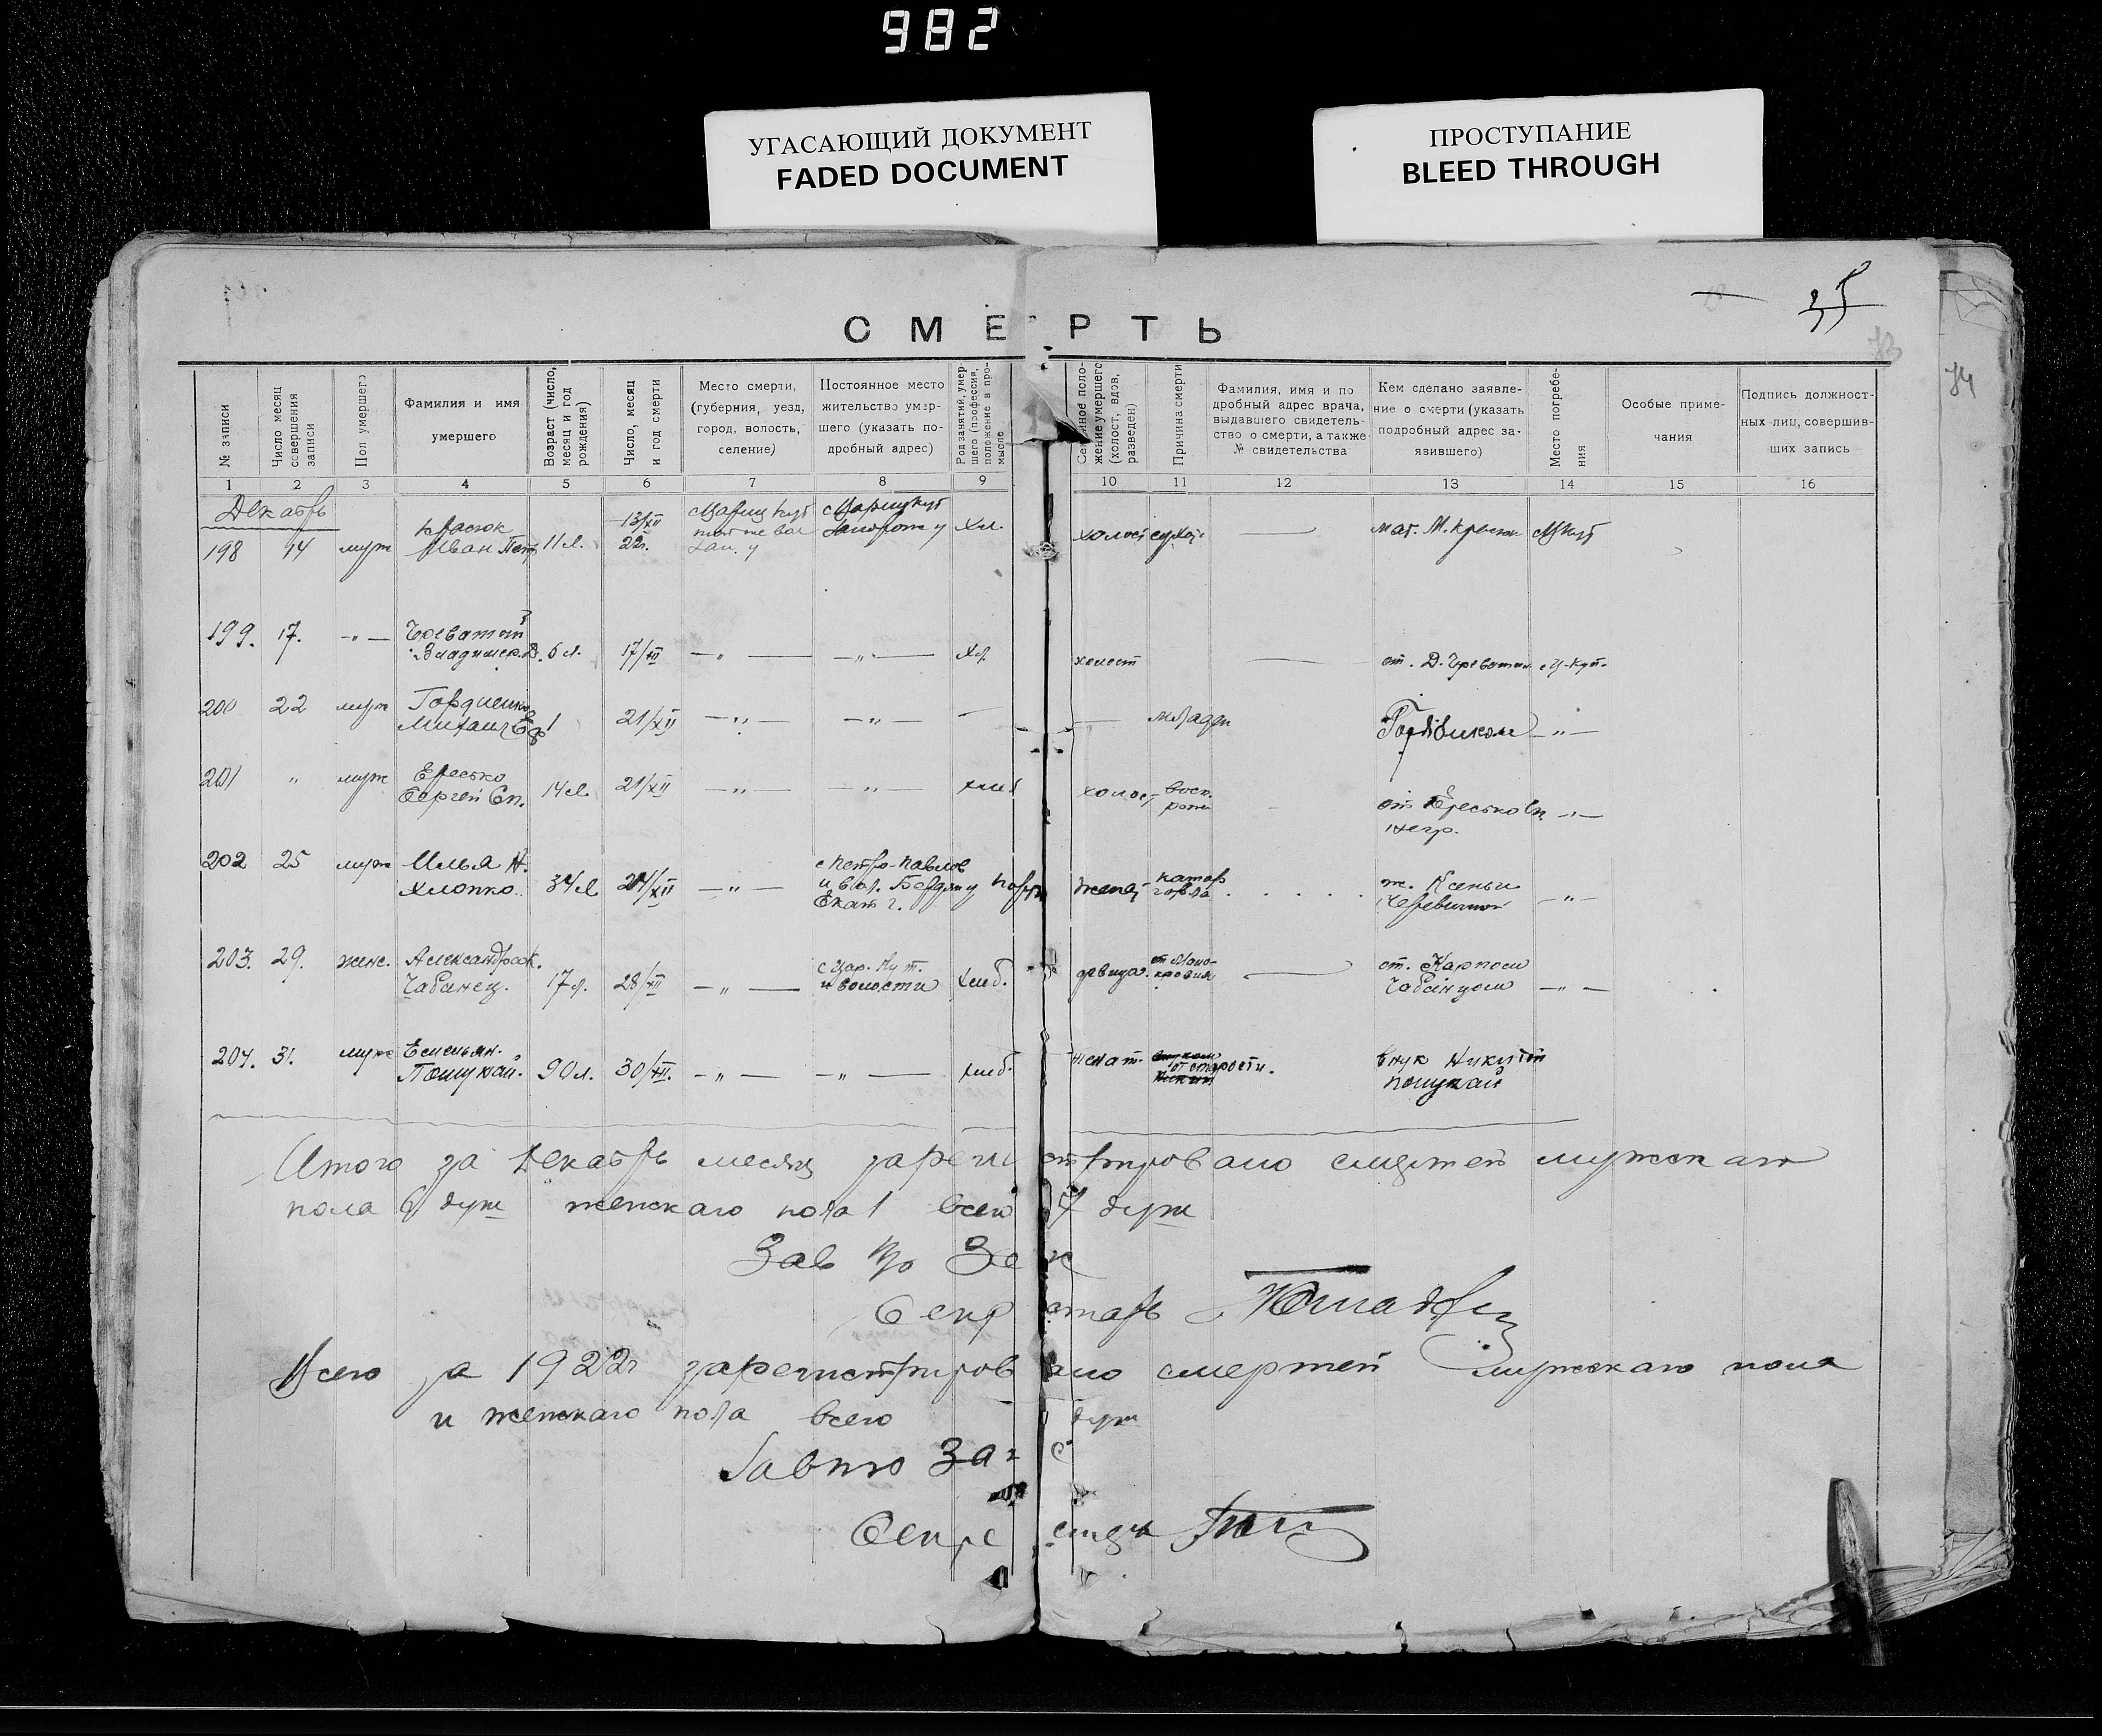 982
УГАСАЮЩИЙ ДОКУМЕНТ
FADED DOCUMENT
ПРОСТУПАНИЕ
BLEED THROUGH
35
74
СМЕРТЬ
№ записи
Число месяц совершения записи
Пол умершего
Фамилия и имя умершего
Возраст (число, месяц и год рождения)
Число, месяц и год смерти
Место смерти, (губерния, уезд, город, волость, селение)
Постоянное место жительство умершего (указать подробный адрес)
Род занятий, умершего (профессия, положение в промысле
Семейное положение умершего (холост, вдов, разведен)
Причина смерти
Фамилия, имя и подробный адрес врача, выдавшего свидетельство о смерти, а также № свидетельства
Кем сделано заявление о смерти (указать подробный адрес заявившего)
Место погребения
Особые примечания
Подпись должностных лиц, совершивших запись
1 2 3 4 5 6 7 8 9 10 11 12 13 14 15 16
Декабрь
198 14 муж Красюк Иван Пет 11 л. 13/XII 22г. Хл. холост мат. М. Красюк
199. 17. -"- Чреватый Владимер. Д. 6 л. 17/XII -"- -"- хл. холост — от. Д. Чреватый
200 22 муж Гордиенко Михаил Еф 1 21/XII -"- -"- — — младен -"-
201 " муж Ересько Сергей Сп. 14 л. 21/XII -"- -"- хлеб холост восп. от Ересько Сп. -"-
202 25 муж Илья Н. Хлопко 34 л 24/XII -"- с Петро-Павлов и вол. Бердян у Екат г. женат катар горла ж. Ксеньи -"-
203. 29. женс. Александра К. Чабанец. 17 л. 28/XII -"- с Цар. Кут. и волости хлеб. девица. от мало-кровия — от. Карпом Чабанцом -"-
204. 31. муж Емельян. Попукай. 90 л. 30/XII. -"- -"- хлеб. женат. от старости. внук Никитой попукай
Итого за Декабрь месяц зарегистрировано смертей мужскаго
пола 6 душ женскаго пола 1 всего 7 душ
Зав
Секретарь
Всего за 1922г зарегистрировано смертей мужскаго пола
и женскаго пола всего душ
Завпо Загс
Секретарь